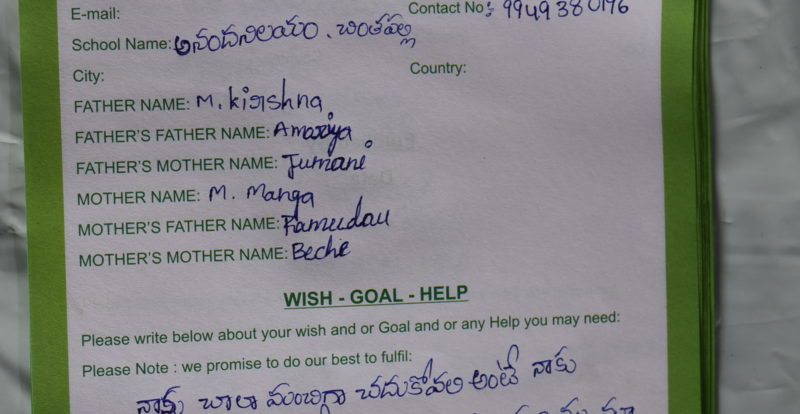 E-mail:
Contact No: 9949380196
School Name: ఆనందనిలయం. చింతపల్లి
City:
Country:
FATHER NAME: M. Kirshna
FATHER'S FATHER NAME: Amariya
FATHER'S MOTHER NAME: Jumani
MOTHER NAME: M. Manga
MOTHER'S FATHER NAME: Ramudau
MOTHER'S MOTHER NAME: Beche
WISH - GOAL - HELP
Please write below about your wish and or Goal and or any Help you may need:
Please Note : we promise to do our best to fulfil:
నాకు చాలా మంచిగా చదుకోవలి అంటే నాకు